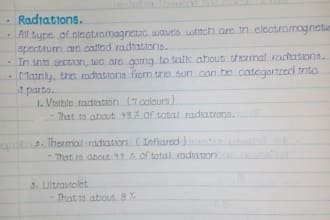 Radiations.
• All type of electromagnetic waves which are in electromagnetic
spectrum are called radiations.
• In this section, we are going to talk about thermal radiations.
• Mainly, the radiations from the sun can be categorized into
3 parts.
1. Visible radiation (7 colours)
- That is about 43% of total radiations.
2. Thermal radiation (Infrared)
- That is about 49% of total radiation
3. Ultraviolet
- That is about 8%